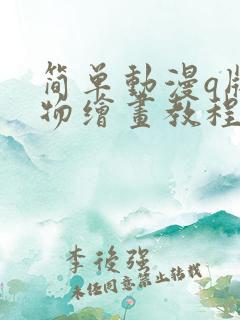 简单動漫q版
物繪畫教程
李後强
未经同意禁止转载